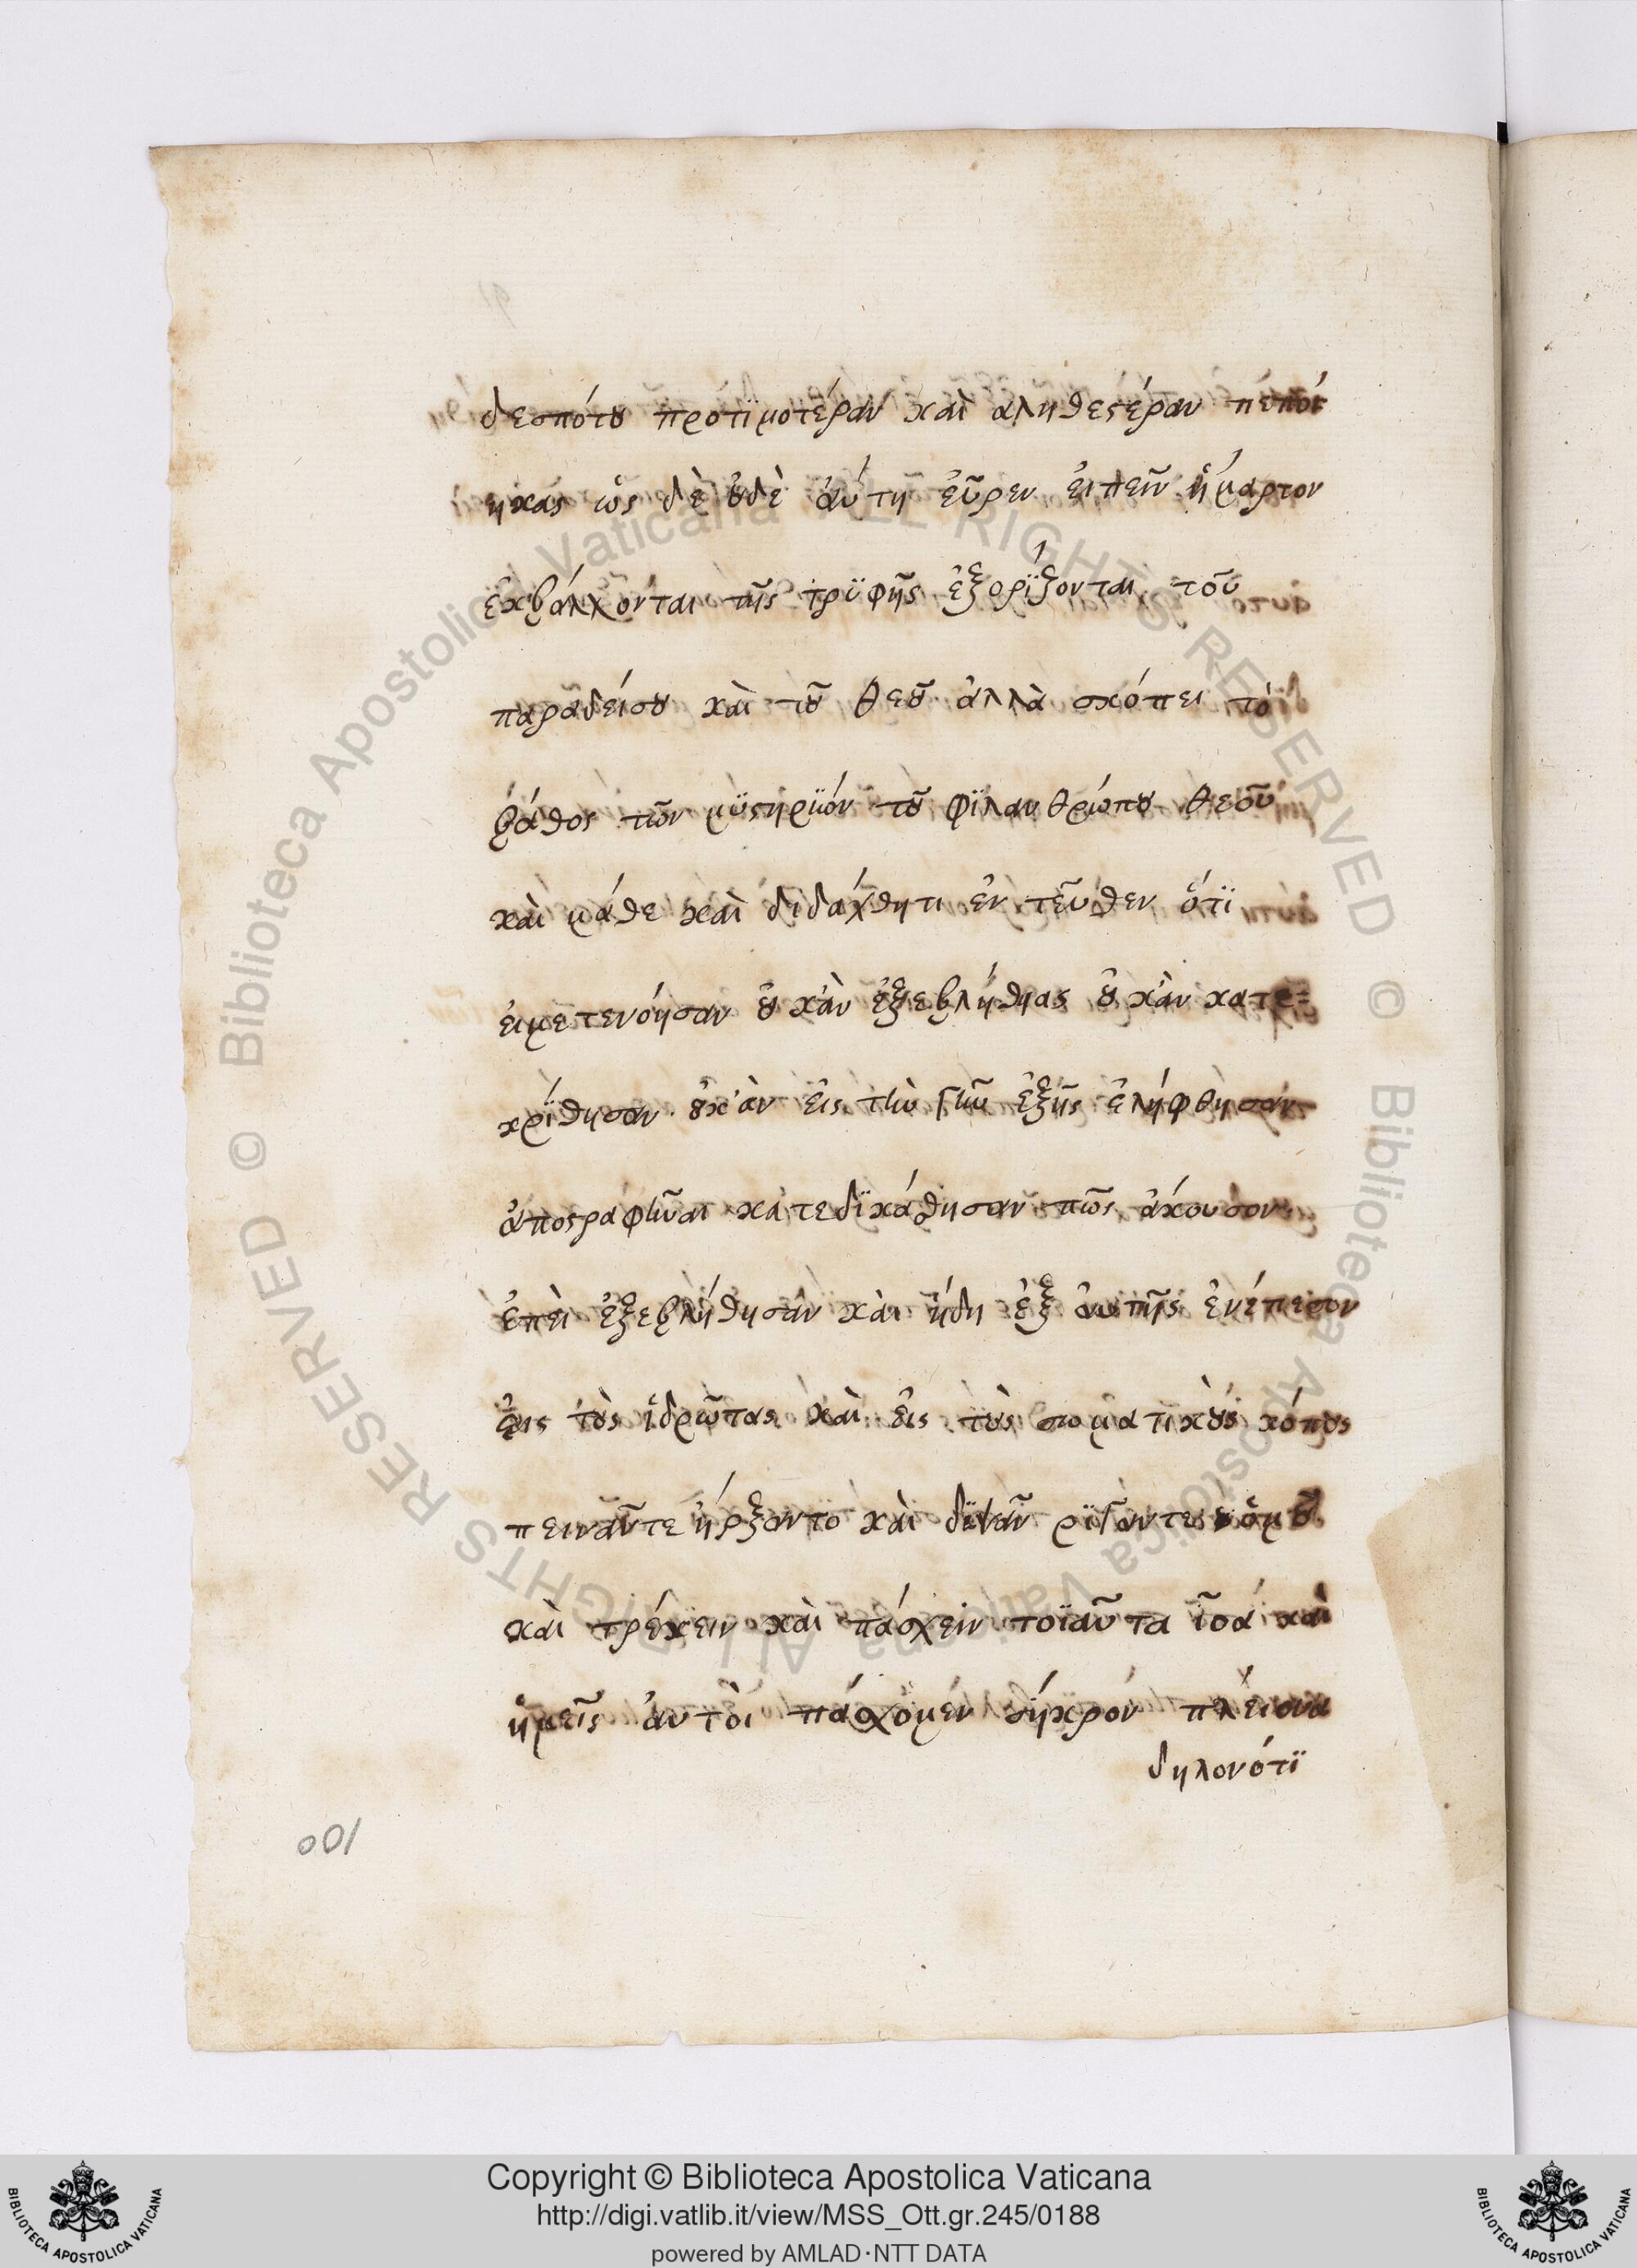 δεσπότου προτϊμοτέραν καὶ αληθεστέραν πέποί
ηκας ὡς δὲ οὐδὲ ἀύτη ἐῦρεν ἐιπεῖν ἥμαρτον
ἐκβάλλονται τῆς τρϋφῆς ἐξορίζονται τοῦ
παραδείσου καὶ τοῦ θεοῦ ἀλλὰ σκόπει τὸ
βάθος τῶν μϋστηρϊών τοῦ φϊλανθρώπου θεοῦ
καὶ μάθε καὶ διδάχθητι ἐν τεῦθεν ὅτϊ
ἐι μετενόησαν οὐκ ἀν ἐξεβλήθησαν οὐκ ἀν κατε-
κρΐθησαν οὐκ ἀν ἐις τὴν γῆν ἐξῆς ἐλήφθησαν
ἀποστραφῆναι κατεδϊκάσθησαν πῶς ἀκουσον
ἐπεὶ ἐξεβλήθησαν καὶ ἤδη ἐξ ἀυτῆς ἐνέπεσον
ἐις τοὺς ἱδρῶτας καὶ ἐις τοὺς σωματικοὺς κόπους
πεινᾶν τε ἠρξαντο καὶ δϊψᾶν ρϊγᾶν τε ὁμοῦ
καὶ τρέχειν καὶ πάσχειν τοϊαῦτα ἶσα καὶ
ἡμεῖς ἀυτὸι πάσχομεν πλείονα
δηλονότϊ
100
Copyright © Biblioteca Apostolica Vaticana
http://digi.vatlib.it/view/MSS_Ott.gr.245/0188
powered by AMLAD·NTT DATA
BIBLIOTECA APOSTOLICA VATICANA
BIBLIOTECA APOSTOLICA VATICANA
© Biblioteca Apostolica Vaticana ALL RIGHTS RESERVED
© Biblioteca Apostolica Vaticana ALL RIGHTS RESERVED